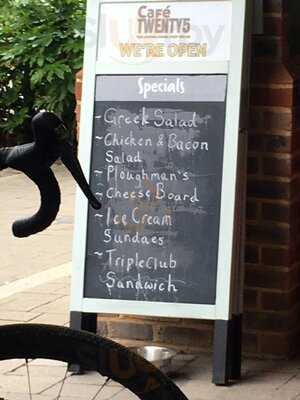 Café
TWENTY5
WE'RE OPEN
Specials
- Greek Salad
- Chicken & Bacon
Salad
- Ploughman's
- Cheese Board
- Ice Cream
Sundaes
- Triple Club
Sandwich